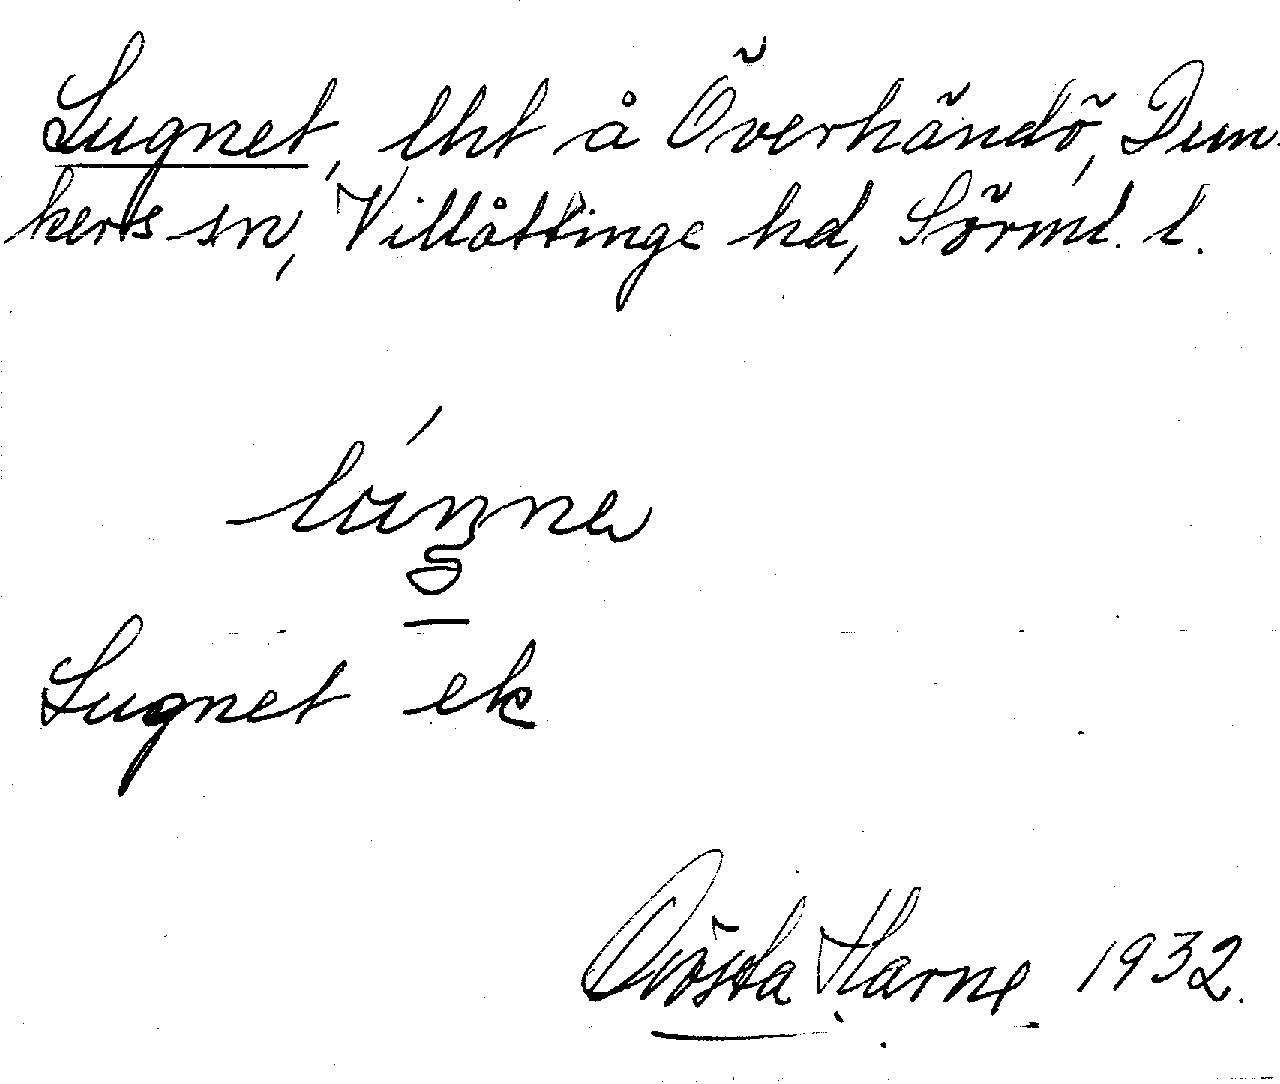 Lugnet, lht å Överhändö, Dun-
kers sn, Villåttinge hd, Sörml. l.
Lugnet ek
Gösta Harne 1932.